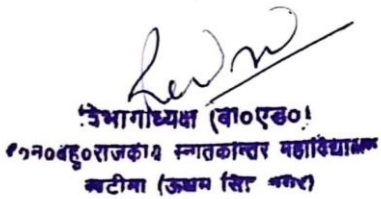 विभागाध्यक्ष (बी०एड०)
राजकीय स्नातकोत्तर महाविद्यालय
खटीमा (ऊधम सिंह नगर)